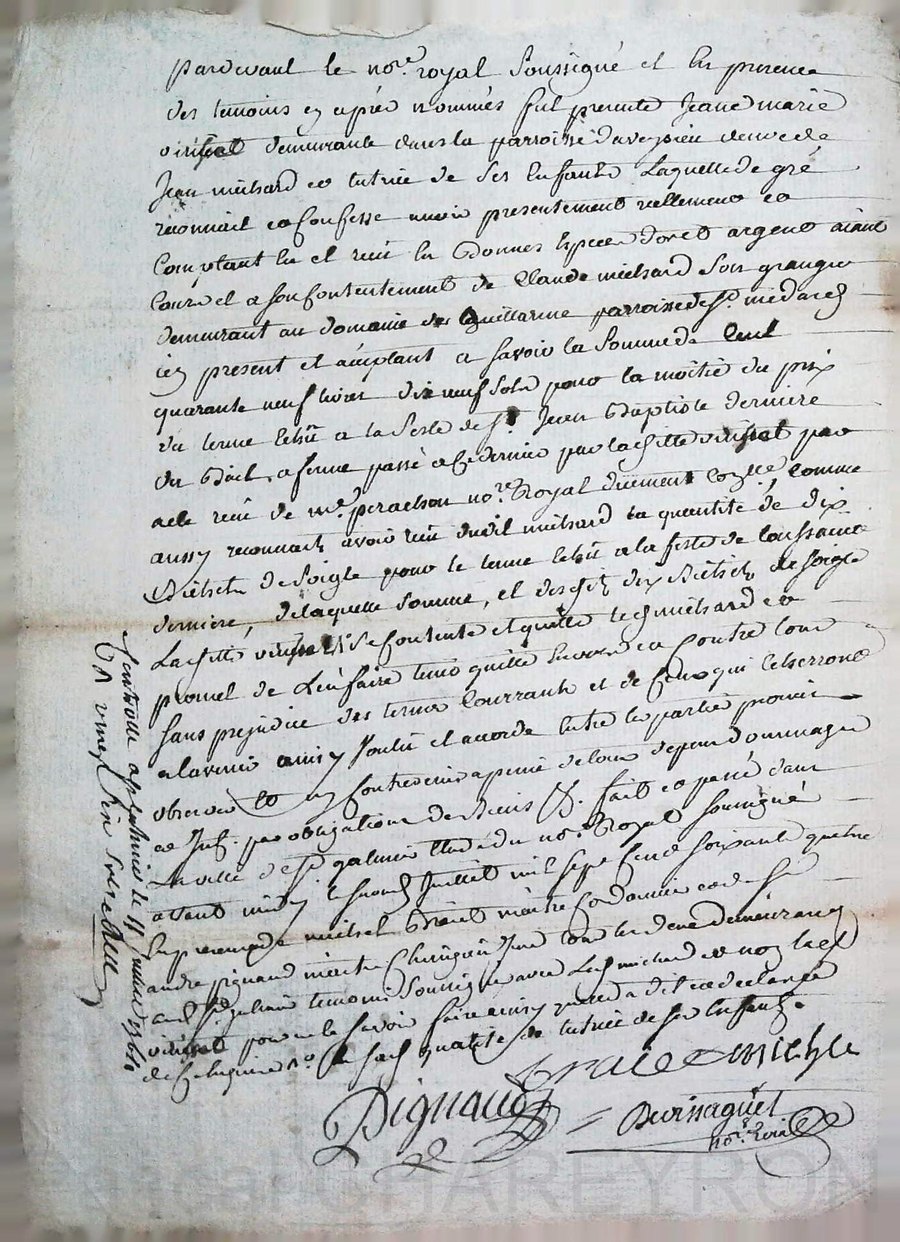 pardevant le nore. royal soussigné et en presence
des temoins cy aprés nommés fut presente Jeane marie
demeurante dans la parroisse daveysieu veuve de
Jean michard et tutrice de ses enfants Laquelle de gré
reconnait et confesse avoir presentement reellement et
comptant eu et reçu en bonnes especes dor et argent aiant
cours et a son contentement de Claude michard son granger
demeurant au domaine des Guillarme parroisse de st. medard
icy present et acceptant a savoir la somme de Cent
quarante neuf livres dix neuf sols pour la moitié du prix
du terme echû a la feste de st. Jean Baptiste derniere
du Bail a ferme passé a ce dernier par lad. par
acte reçu de me. perachon nore. Royal düement comme
aussy reconnait avoir reçu dudit michard la quantité de dix
Bichets de Soigle pour le terme echû a la feste de toussaint
derniere, de laquelle somme, et desdits dix Bichets de Soigle
La se Contente et quitte led. michard et
promet de L'en faire tenir quitte envers et Contre tous
sans prejudice des termes Courrants et de Ceux qui echerront
a lavenir ainsy Voulu et accordé entre les parties promis
observer et ny Contrevenir a peine de tous depens dommages
et Int. par obligations de Biens &. fait et passé dans
La ville de st. galmier Etude du nore. Royal soussigné
avant midy le Juillet mil sept Cent soixante quatre
En presence de michel maitre Cordonnier et de sr.
andre pignaud maitre Chirurgien Jure tous les deux demeurants
aud. st. galmier temoins soussignés avec Led. michard et non lad.
pour ne le savoir faire ainsy quelle a dit et declaré
de ce enquise en sad. qualité de tutrice de ses Enfants.
michel
Pignaud
Buissaguet
nore. Roial
Controllé a st galmier le 11 Juillet 1764
Reçu vingt six sols
Michel CHAREYRON